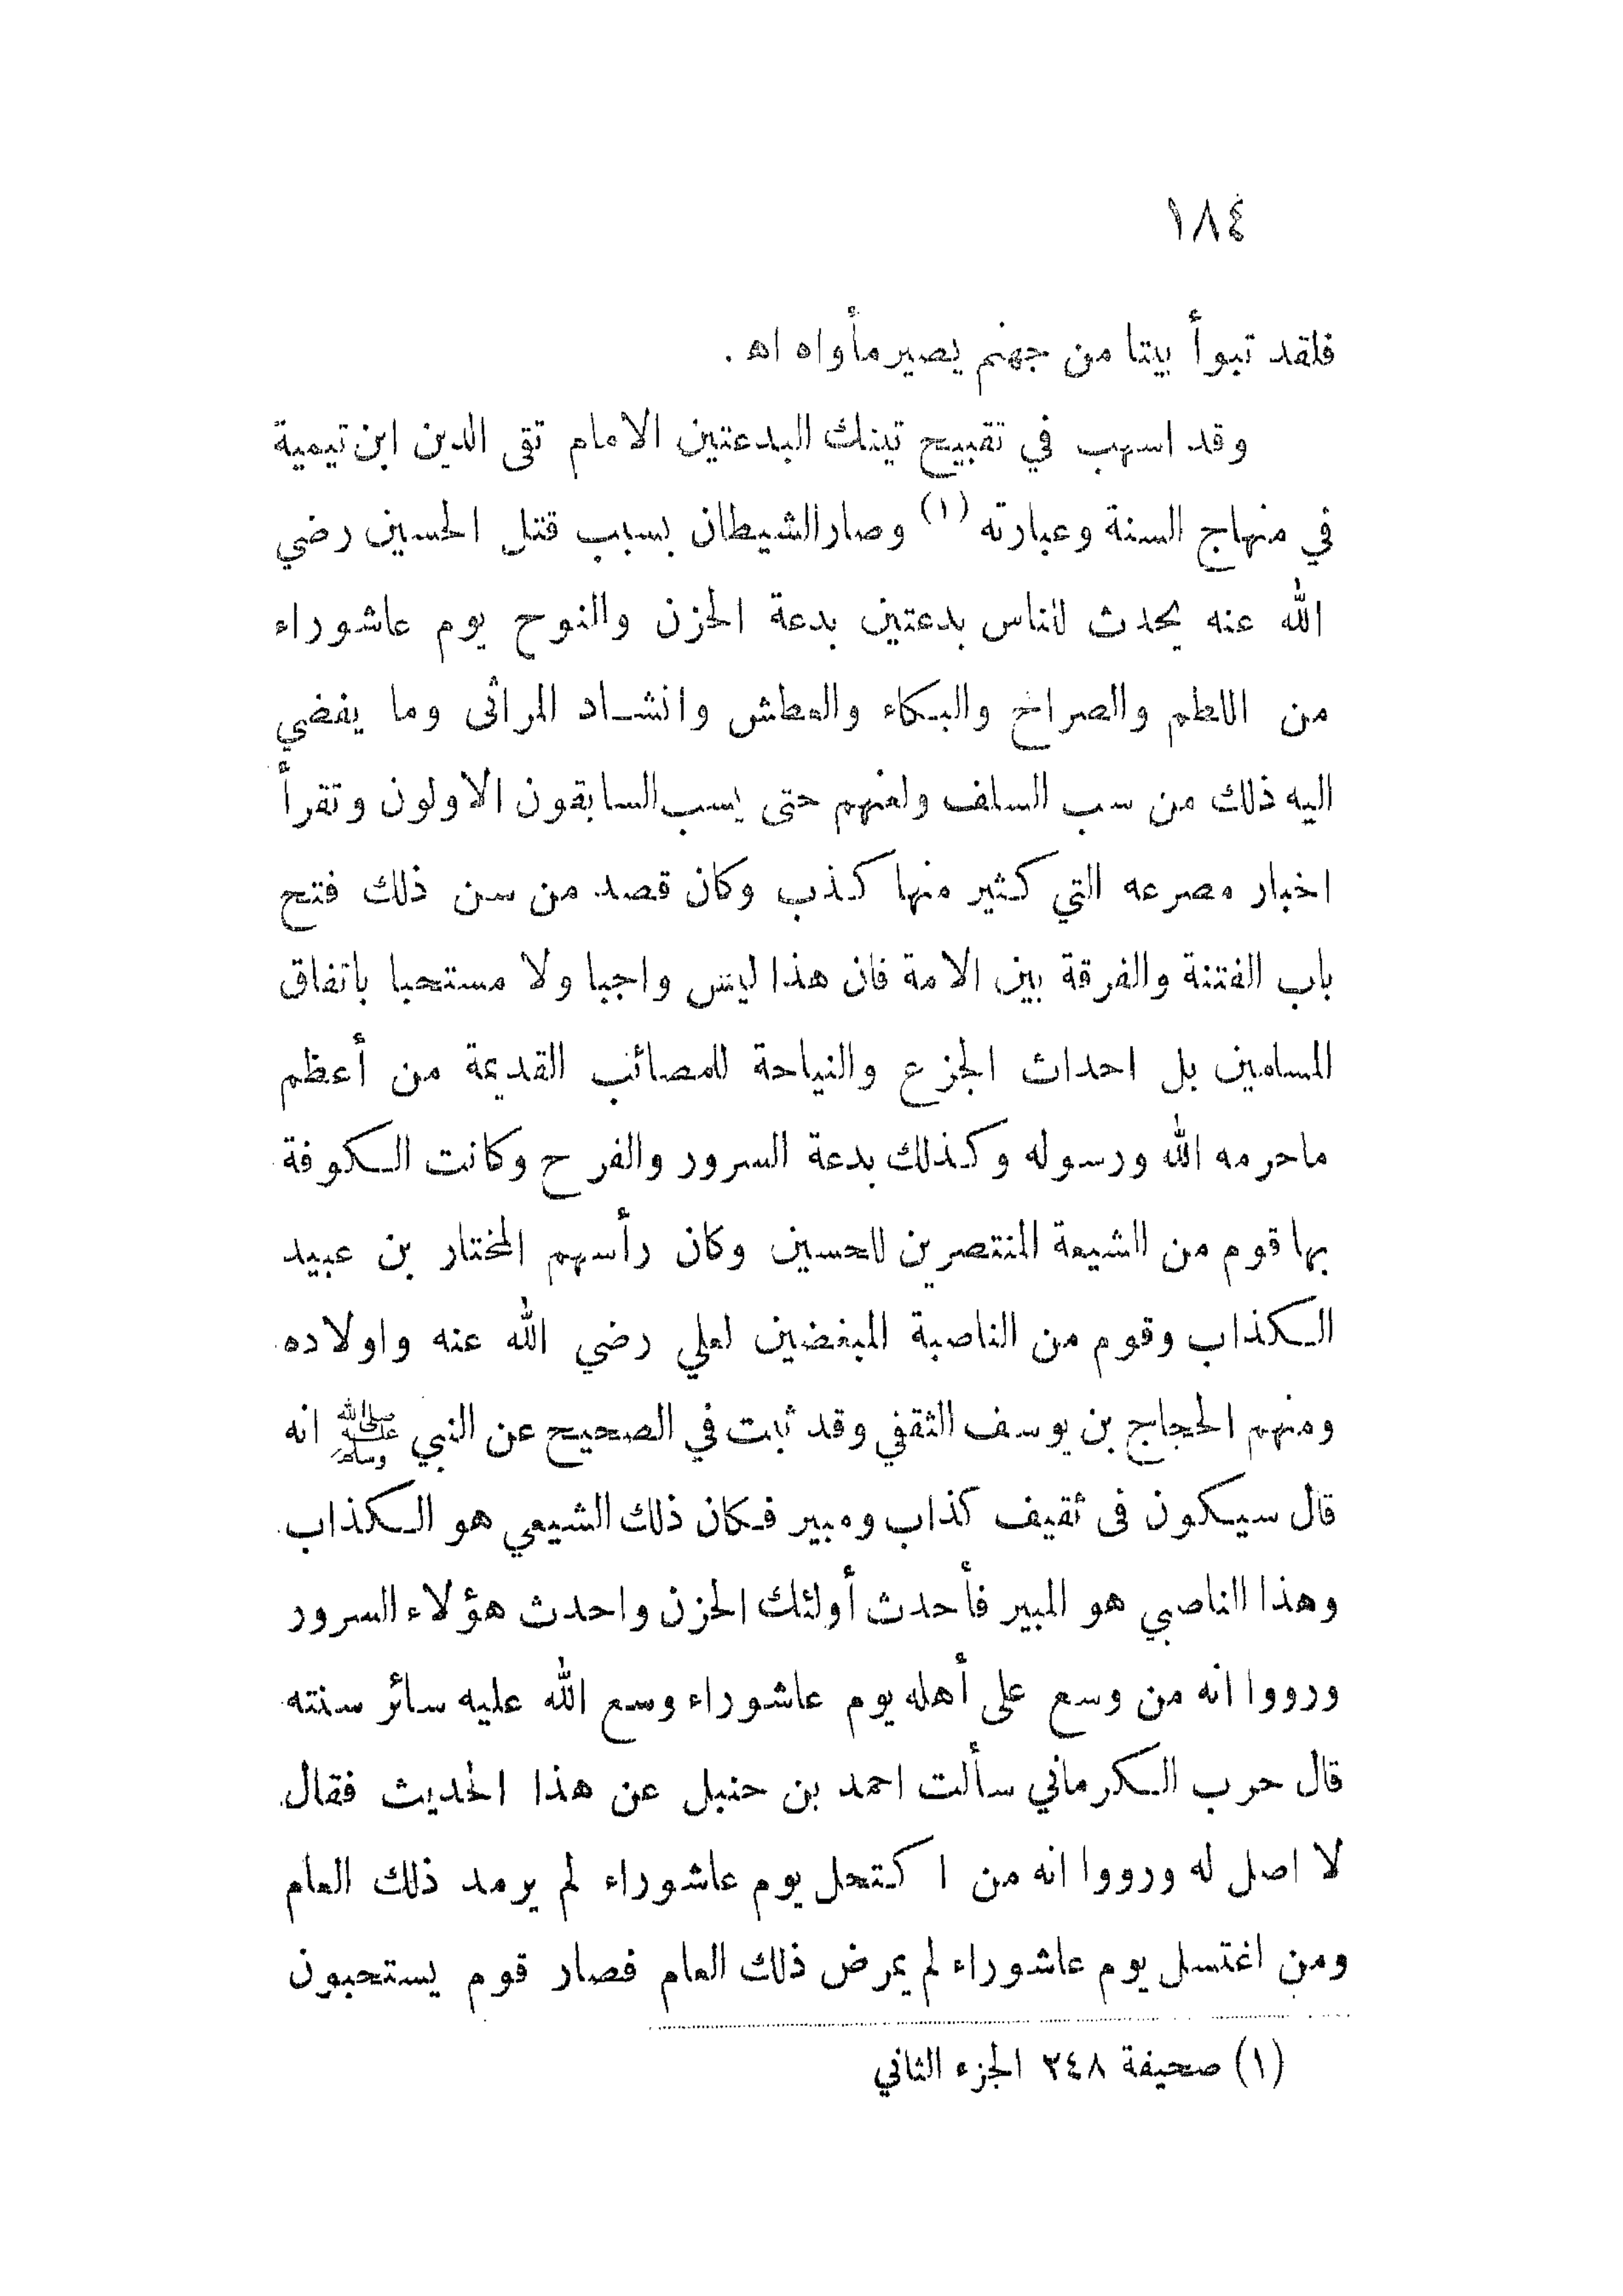 ١٨٤
فلقد تبوأ بيتا من جهنم يصير مأواه اه .
وقد اسهب في تقبيح تينك البدعتين الامام تقى الدين ابن تيمية
في منهاج السنة وعبارته (١) وصار الشيطان بسبب قتل الحسين رضي
الله عنه يحدث للناس بدعتين بدعة الحزن والنوح يوم عاشوراء
من اللطم والصراخ والبكاء والعطش وانشاد المراثى وما يفضي
اليه ذلك من سب السلف ولعنهم حتى يسب السابقون الاولون وتقرأ
اخبار مصرعه التي كثير منها كذب وكان قصد من سن ذلك فتح
باب الفتنة والفرقة بين الامة فان هذا ليس واجبا ولا مستحبا باتفاق
المسلمين بل احداث الجزع والنياحة للمصائب القديمة من أعظم
ماحرمه الله ورسوله وكذلك بدعة السرور والفرح وكانت الكوفة
بها قوم من الشيعة المنتصرين للحسين وكان رأسهم المختار بن عبيد
الكذاب وقوم من الناصبة المبغضين لعلي رضي الله عنه واولاده
ومنهم الحجاج بن يوسف الثقفي وقد ثبت في الصحيح عن النبي ﷺ انه
قال سيكون فى ثقيف كذاب ومبير فكان ذلك الشيعي هو الكذاب
وهذا الناصبي هو المبير فأحدث أولئك الحزن واحدث هؤلاء السرور
ورووا انه من وسع على أهله يوم عاشوراء وسع الله عليه سائر سنته
قال حرب الكرماني سألت احمد بن حنبل عن هذا الحديث فقال
لا اصل له ورووا انه من اكتحل يوم عاشوراء لم يرمد ذلك العام
ومن اغتسل يوم عاشوراء لم يمرض ذلك العام فصار قوم يستحبون
(١) صحيفة ٢٤٨ الجزء الثاني